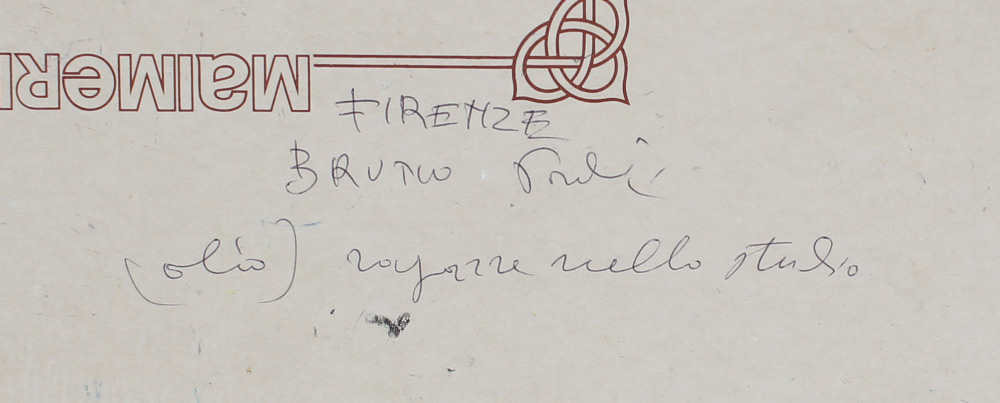 MAIMERI
FIRENZE
BRUNO
(olio) ragazze nello studio